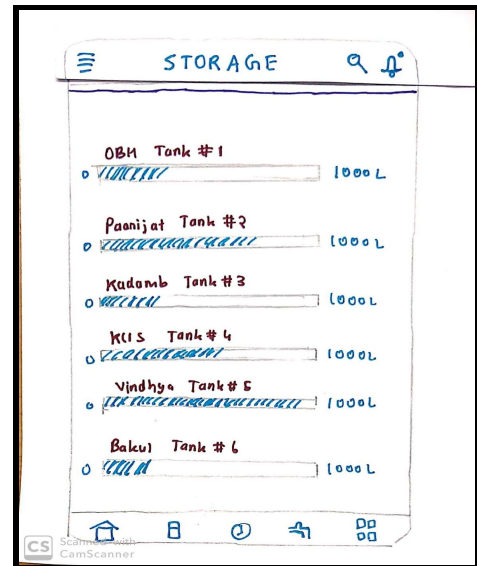 STORAGE
OBH Tank #1
0 1000L
Paarijat Tank #2
0 1000L
Kadamb Tank #3
0 1000L
KCIS Tank #4
0 1000L
Vindhya Tank #5
0 1000L
Bakul Tank #6
0 1000L
CS Scanned with
CamScanner